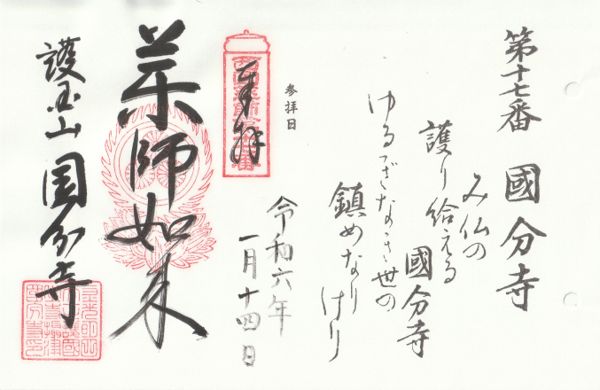 第十七番 國分寺
み仏の
護り給える
國分寺
ゆるぎなき世の
鎮めなり
けり
参拝日
令和六年
一月十四日
奉拝
薬師如来
護国山 国分寺